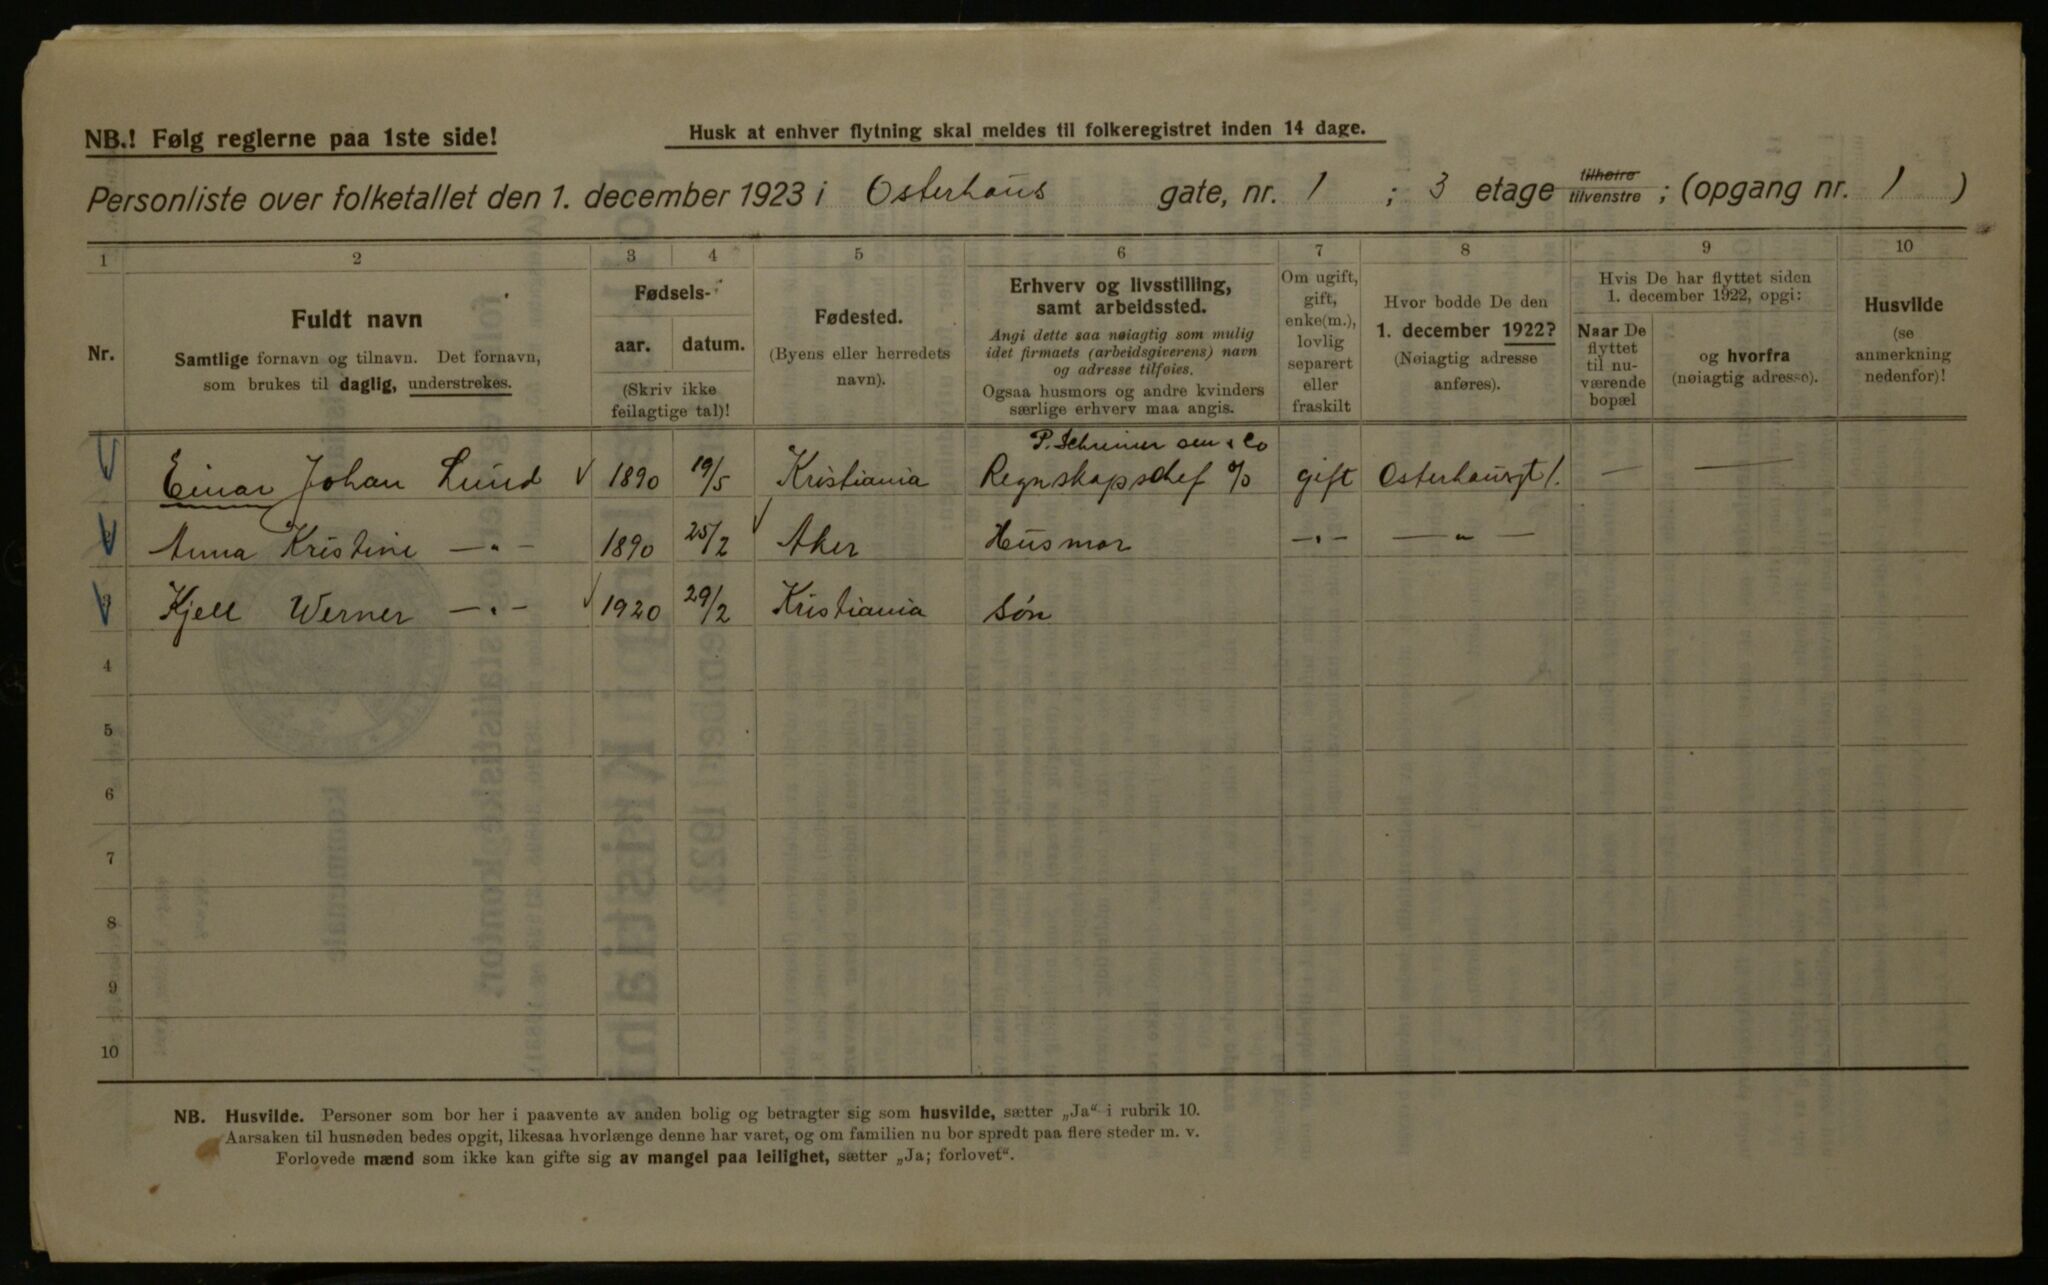 NB.! Følg reglerne paa 1ste side!
Husk at enhver flytning skal meldes til folkeregistret inden 14 dage.
Personliste over folketallet den 1. december 1923 i Osterhaus gate, nr. 1 ; 3 etage tilhøire tilvenstre ; (opgang nr. 1 )
1 2 3 4 5 6 7 8 9 10
Nr.
Fuldt navn
Samtlige fornavn og tilnavn. Det fornavn,
som brukes til daglig, understrekes.
Fødsels-
aar. datum.
(Skriv ikke
feilagtige tal)!
Fødested.
(Byens eller herredets
navn).
Erhverv og livsstilling,
samt arbeidssted.
Angi dette saa nøiagtig som mulig
idet firmaets (arbeidsgiverens) navn
og adresse tilføies.
Ogsaa husmors og andre kvinders
særlige erhverv maa angis.
Om ugift,
gift,
enke(m.),
lovlig
separert
eller
fraskilt
Hvor bodde De den
1. december 1922?
(Nøiagtig adresse
anføres).
Hvis De har flyttet siden
1. december 1922, opgi:
Naar De
flyttet
til nu-
værende
bopæl
og hvorfra
(nøiagtig adresse).
Husvilde
(se
anmerkning
nedenfor)!
P. Schreiner sen & Co
1 Einar Johan Lund 1890 19/5 Kristiania Regnskapschef a/s gift Osterhausgt 1. — —
2 Anna Kristine —"— 1890 25/2 Aker Husmor —"— —"—
3 Kjell Werner —"— 1920 29/2 Kristiania søn
4
5
6
7
8
9
10
NB. Husvilde. Personer som bor her i paavente av anden bolig og betragter sig som husvilde, sætter „Ja“ i rubrik 10.
Aarsaken til husnøden bedes opgit, likesaa hvorlænge denne har varet, og om familien nu bor spredt paa flere steder m. v.
Forlovede mænd som ikke kan gifte sig av mangel paa leilighet, sætter „Ja; forlovet“.